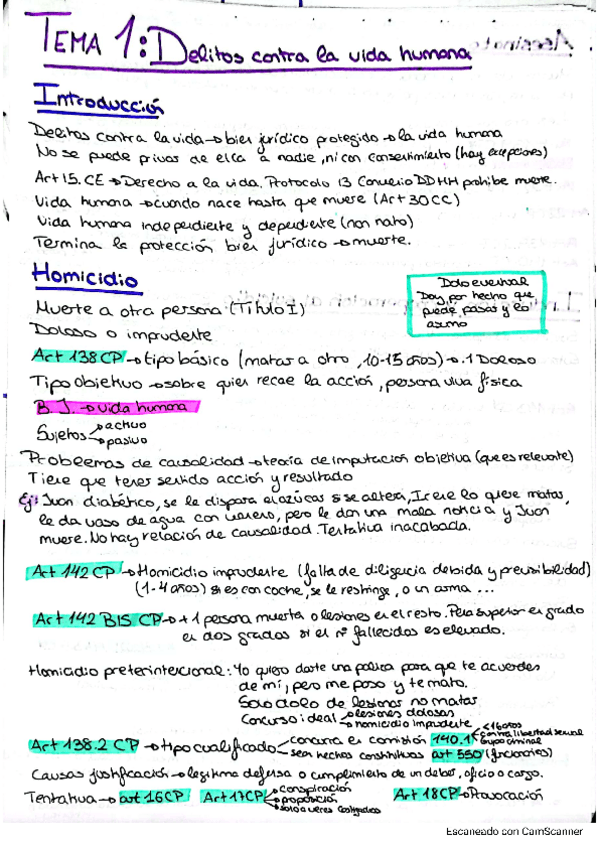 TEMA 1: Delitos contra la vida humana
Introducción
Delitos contra la vida → bien jurídico protegido → la vida humana
No se puede privar de ella a nadie, ni con consentimiento (hay excepciones)
Art 15. CE → Derecho a la vida. Protocolo 13 Convenio DDHH prohibe muerte.
Vida humana → cuando nace hasta que muere (Art 30 CC)
Vida humana independiente y dependiente (non nato)
Termina la protección bien jurídico → muerte.
Homicidio
Dolo eventual
Doy por hecho que
puede pasar y lo
asumo
Muerte a otra persona (Título I)
Doloso o imprudente
Art 138 CP → tipo básico (matar a otro, 10-15 años) → .1 Doloso
Tipo objetivo → sobre quien recae la acción, persona viva física
B. J. → vida humana
Sujetos → activo
→ pasivo
Problemas de causalidad → teoría de imputación objetiva (que es relevante)
Tiene que tener sentido acción y resultado
Ej: Juan diabético, se le dispara el azúcar si se altera, Irene lo quiere matar,
le da vaso de agua con veneno, pero le dan una mala noticia y Juan
muere. No hay relación de causalidad. Tentativa inacabada.
Art 142 CP → Homicidio imprudente (falta de diligencia debida y previsibilidad)
(1-4 años) si es con coche, se le restringe, o un arma ...
Art 142 BIS CP → +1 persona muerta o lesiones en el resto. Pena superior en grado
en dos grados si el nº fallecidos es elevado.
Homicidio preterintencional: Yo quiero darte una paliza para que te acuerdes
de mí, pero me paso y te mato.
Solo dolo de lesionar no matar
Concurso ideal → lesiones dolosas
→ homicidio imprudente
Art 138.2 CP → tipo cualificado → concurra en comisión 140.1 → <16 años
→ contra libertad sexual
→ grupo criminal
→ sean hechos constitutivos art 550 (funcionarios)
Causas justificación → legítima defensa o cumplimiento de un deber, oficio o cargo.
Tentativa → art 16 CP Art 17 CP → conspiración
→ proposición
→ solo a veces castigados
Art 18 CP → Provocación
Escaneado con CamScanner